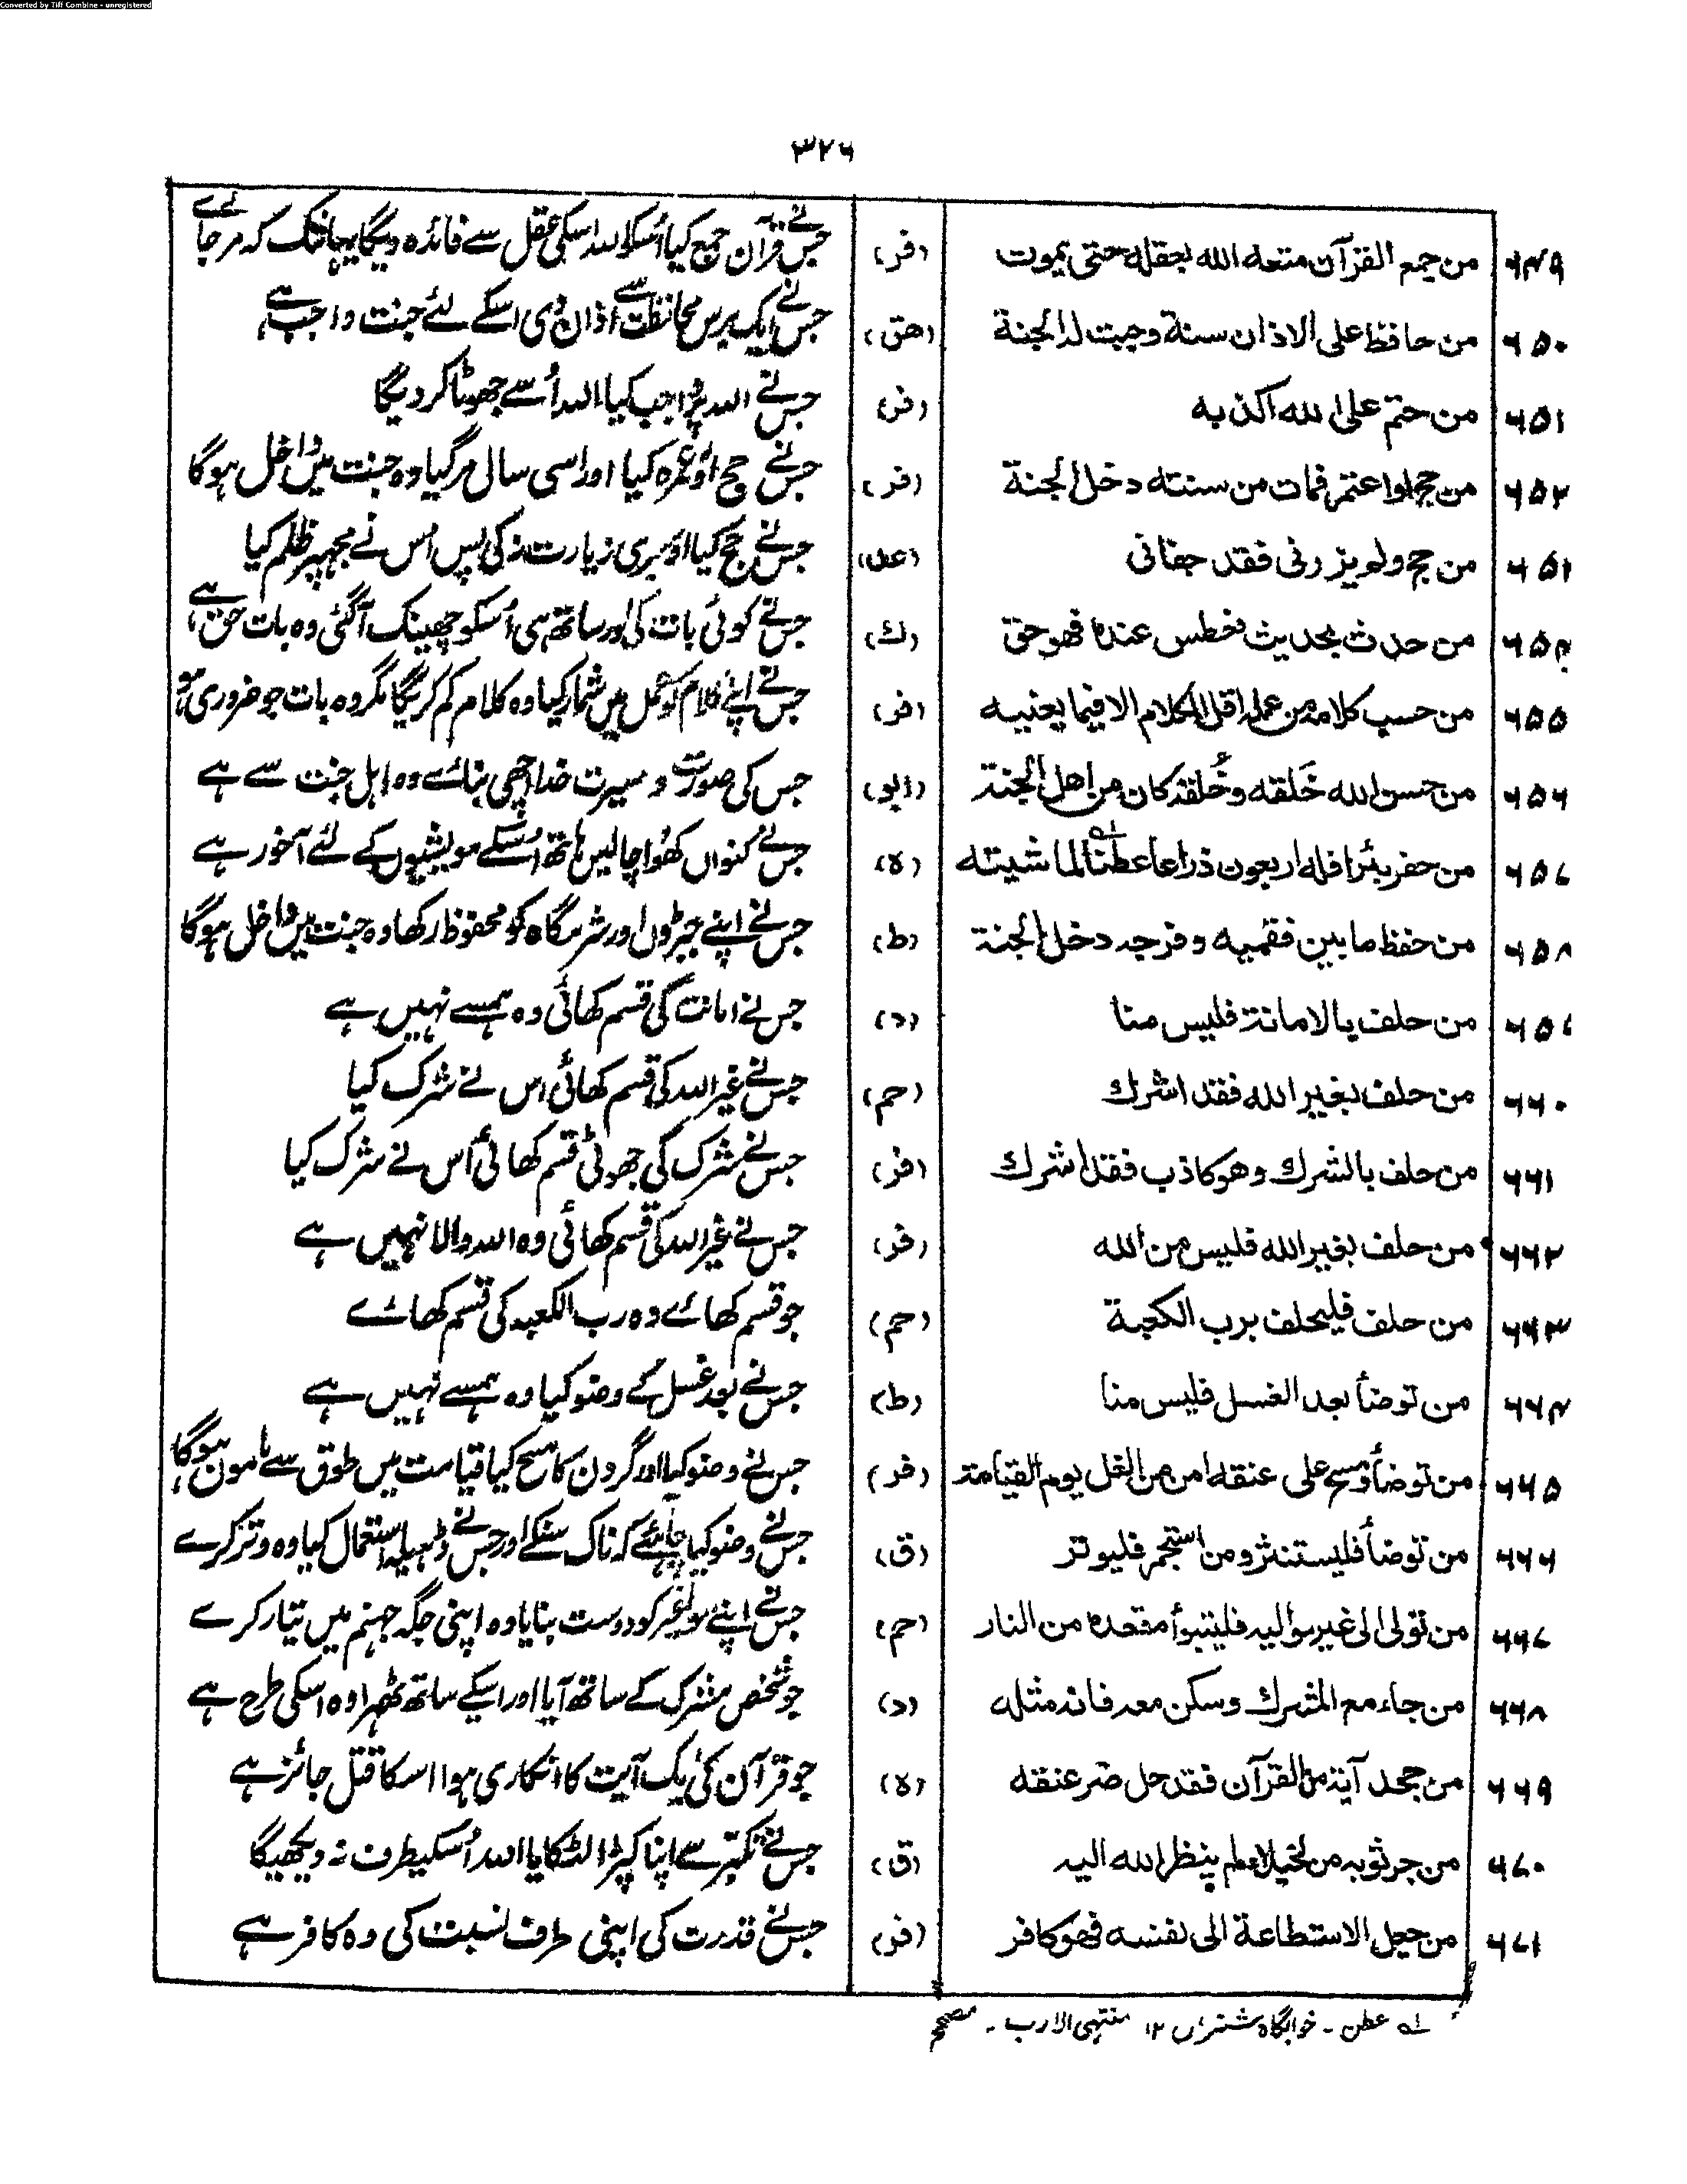 Converted by Tiff Combine - unregistered
۳۲۶
۶۴۹ من جمع القرآن متعه الله بعقله حتی یموت (فر) جس نے قرآن جمع کیا اُسکو اللہ اسکی عقل سے فائدہ دیگا یہانتک کہ مرجائے
۶۵۰ من حافظ علی الاذان سنة وجبت له الجنة (هق) جس نے ایک برس محافظت سے اذان دی اسکے لئے جنت واجب ہے
۶۵۱ من حتم علی الله اکذبه (فر) جس نے اللہ پر واجب کیا اللہ اُسے جھوٹا کر دیگا
۶۵۲ من حج او اعتمر فمات من سنته دخل الجنة (فر) جس نے حج اور عمرہ کیا اور اسی سال مرگیا وہ جنت میں داخل ہوگا
۶۵۳ من حج ولم یزرنی فقد جفانی (عد) جس نے حج کیا اور میری زیارت نہ کی پس اس نے مجھپر ظلم کیا
۶۵۴ من حدث بحدیث فعطس عنده فهو حق (ك) جس نے کوئی بات کی اور ساتھ ہی اُسکو چھینک آگئی وہ بات حق ہے
۶۵۵ من حسب کلامه من عمله اقل الکلام الا فیما یعنیه (فر) جس نے اپنے کلام کو عمل میں شمار کیا وہ کلام کم کریگا مگر وہ بات جو ضروری ہو
۶۵۶ من حسن الله خَلقه وخُلقه کان من اهل الجنة (ابو) جس کی صورت و سیرت خدا اچھی بنائے وہ اہل جنت سے ہے
۶۵۷ من حفر بئرا فله اربعون ذراعا عطنا لہ لماشیته (ہ) جس نے کنواں کھودا چالیس ہاتھ اُسکے مویشیوں کے لئے آخور ہے
۶۵۸ من حفظ ما بین فقمیه وفرجه دخل الجنة (ط) جس نے اپنے جبڑوں اور شرمگاہ کو محفوظ رکھا وہ جنت میں داخل ہوگا
۶۵۹ من حلف بالامانة فلیس منا (د) جس نے امانت کی قسم کھائی وہ ہمسے نہیں ہے
۶۶۰ من حلف بغیر الله فقد اشرك (حم) جس نے غیر اللہ کی قسم کھائی اس نے شرک کیا
۶۶۱ من حلف بالشرك وهو کاذب فقد اشرك (فر) جس نے شرک کی جھوٹی قسم کھائی اُس نے شرک کیا
۶۶۲ من حلف بغیر الله فلیس من الله (فر) جس نے غیر اللہ کی قسم کھائی وہ اللہ والا نہیں ہے
۶۶۳ من حلف فلیحلف برب الکعبة (حم) جو قسم کھائے وہ رب الکعبہ کی قسم کھائے
۶۶۴ من توضأ بعد الغسل فلیس منا (ط) جس نے بعد غسل کے وضو کیا وہ ہمسے نہیں ہے
۶۶۵ من توضأ ومسح علی عنقه امن من الغل یوم القیامة (فر) جس نے وضو کیا اور گردن کا مسح کیا قیامت میں طوق سے مامون ہوگا
۶۶۶ من توضأ فلیستنثر ومن استجمر فلیوتر (ق) جس نے وضو کیا چاہئے کہ ناک سنکے اور جس نے ڈھیلہ استعمال کیا وہ وتر کرے
۶۶۷ من تولی الی غیر موالیه فلیتبوأ مقعده من النار (حم) جس نے اپنے مولی غیر کو دوست بنایا وہ اپنی جگہ جہنم میں تیار کرے
۶۶۸ من جاء مع المشرك وسکن معه فانه مثله (د) جو شخص مشرک کے ساتھ آیا اور اسکے ساتھ ٹھہرا وہ اسکی طرح ہے
۶۶۹ من جحد آیة من القرآن فقد حل ضر عنقه (ہ) جو قرآن کی یک آیت کا انکاری ہوا اسکا قتل جائز ہے
۶۷۰ من جر ثوبه من الخیلاء لم ینظر الله الیه (ق) جس نے تکبّر سے اپنا کپڑا لٹکایا اللہ اُسکیطرف نہ دیکھیگا
۶۷۱ من جعل الاستطاعة الی نفسه فهو کافر (فر) جس نے قدرت کی اپنی طرف نسبت کی وہ کافر ہے
لہ عطن - خوابگاہ شتراں ۱۲ منتہی الارب - مصحح